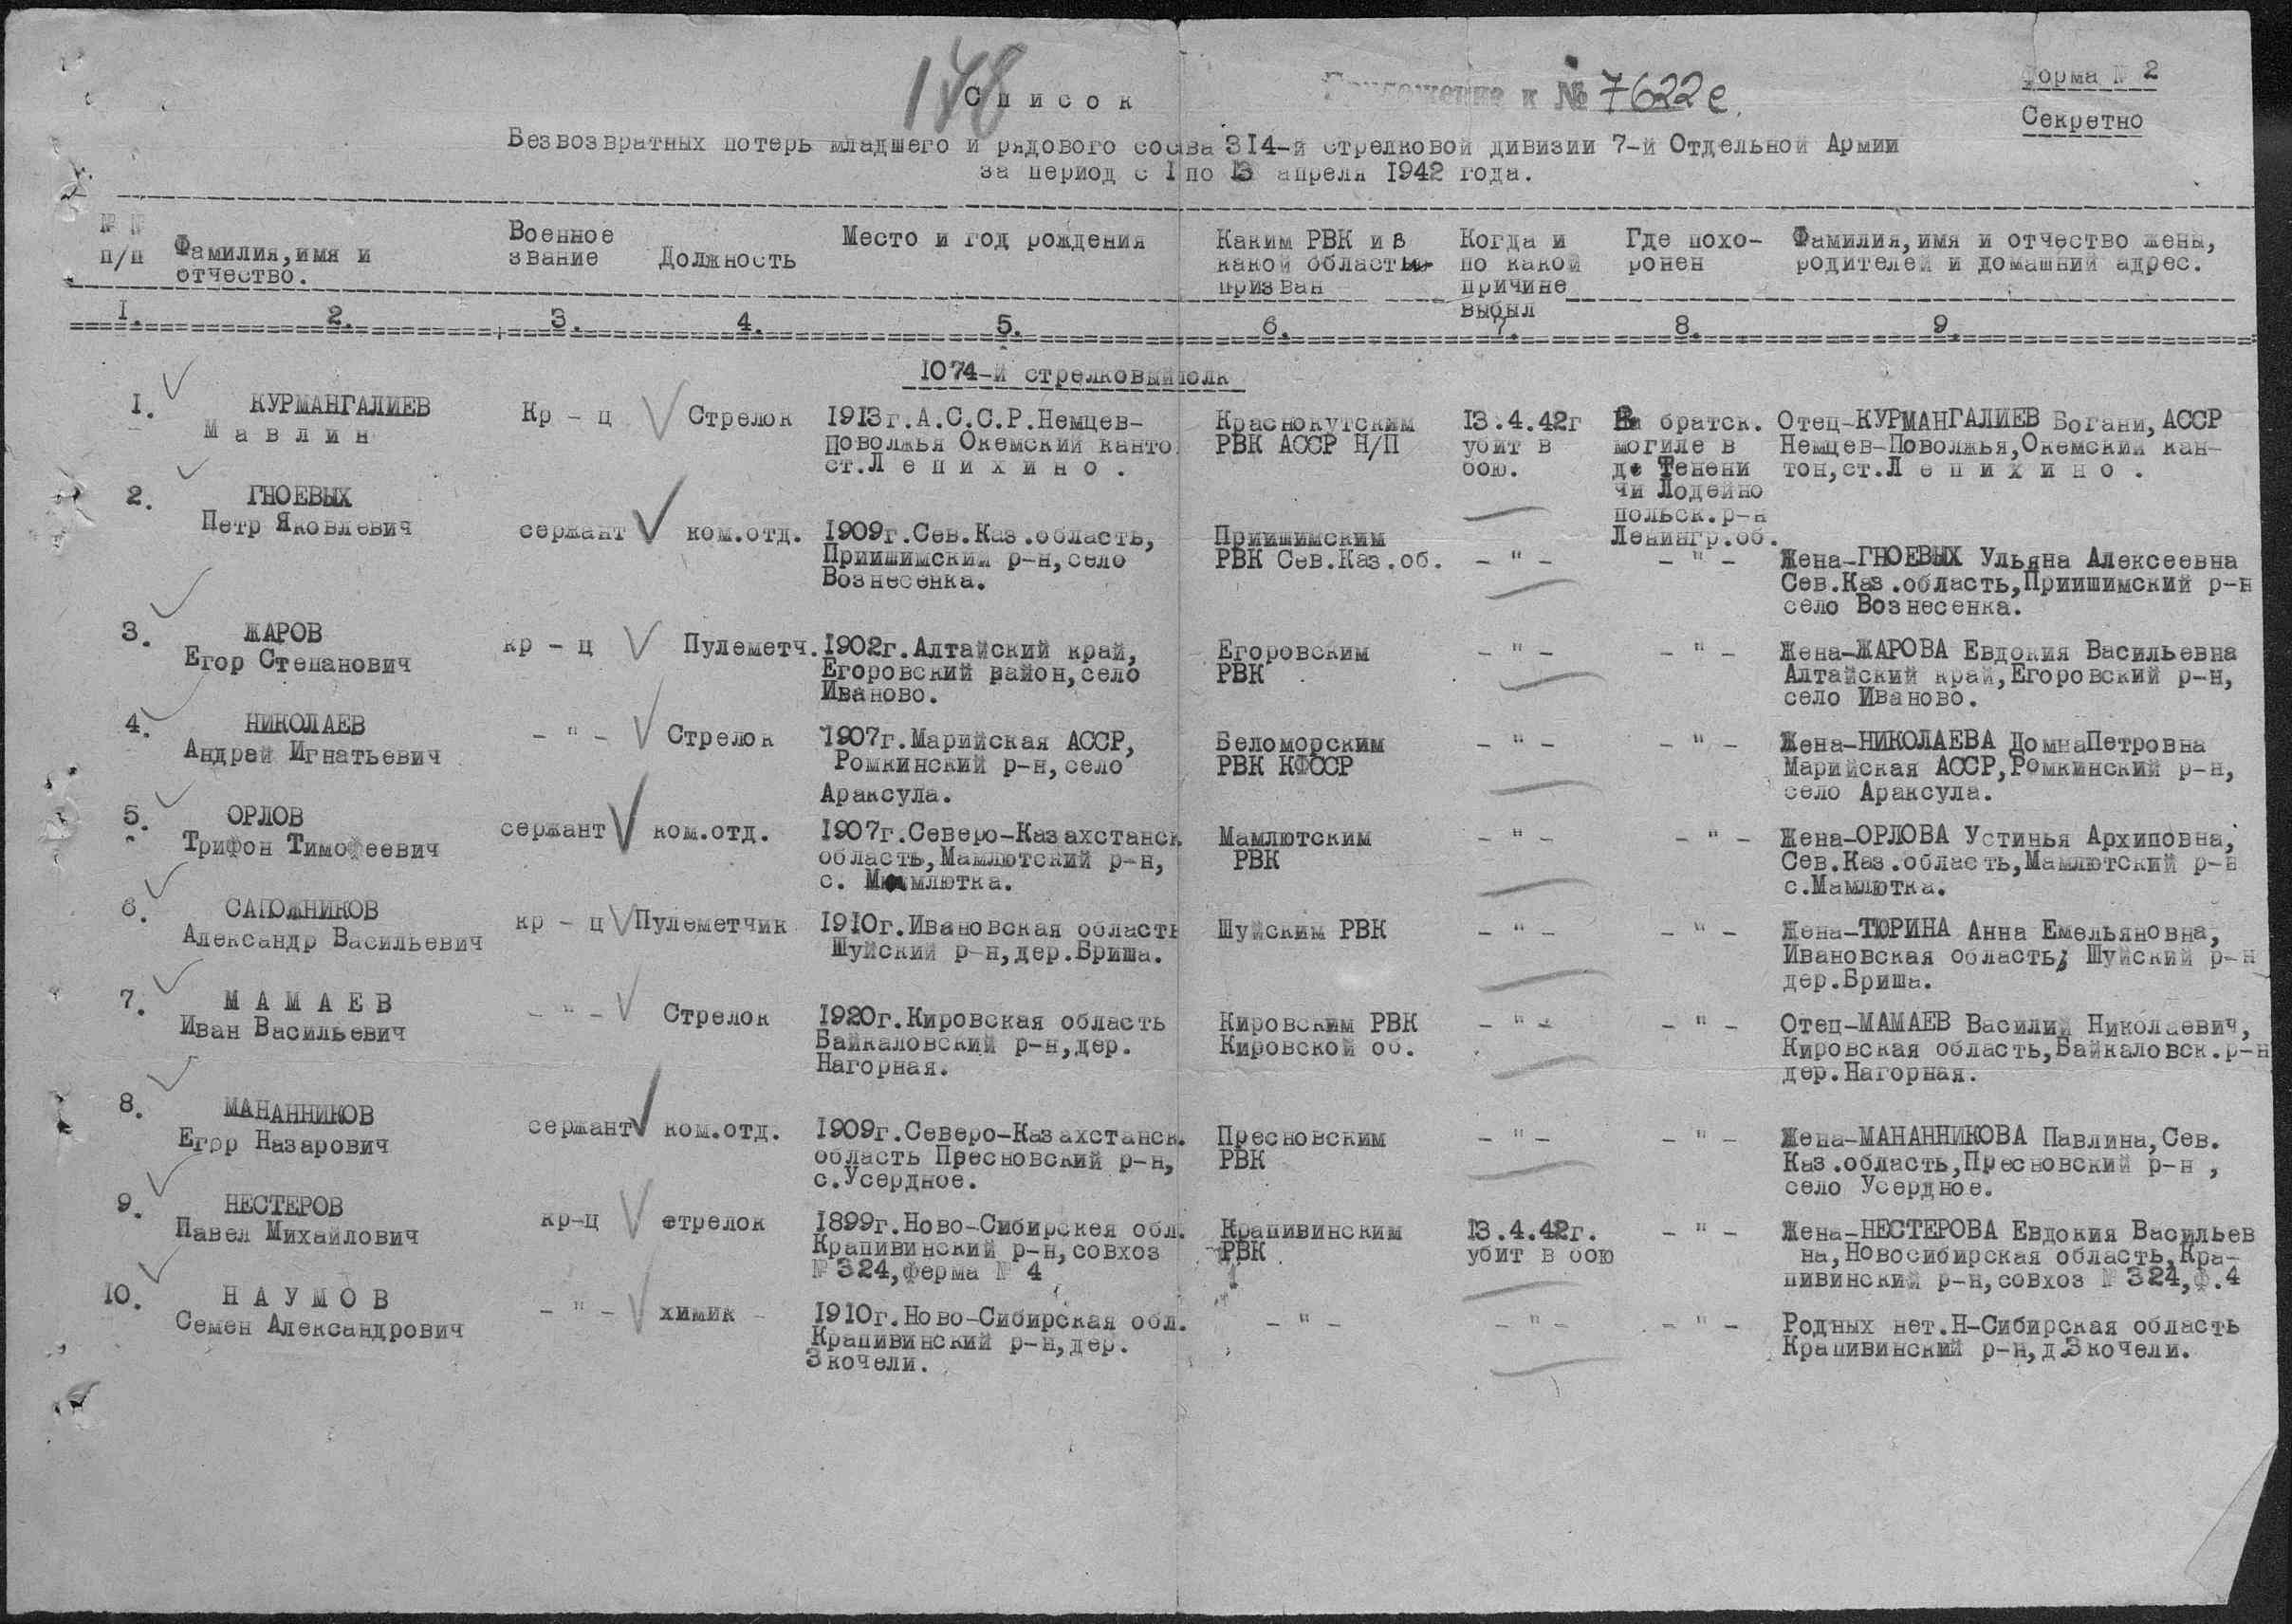 148
Приложение к № 7622с
Форма № 2
Секретно
Список
Безвозвратных потерь младшего и рядового сосва 314-й стрелковой дивизии 7-й Отдельной Армии
за период с 1 по 13 апреля 1942 года.
№ № п/п
Фамилия,имя и отчество.
Военное звание
Должность
Место и год рождения
Каким РВК и в какой области призван
Когда и по какой причине выбыл
Где похо- ронен
Фамилия,имя и отчество жены, родителей и домашний адрес.
1. 2. 3. 4. 5. 6. 7. 8. 9.
1074-й стрелковый полк
1. КУРМАНГАЛИЕВ Кр - ц Стрелок 1913г.А.С.С.Р.Немцев- Краснокутским 13.4.42г братск. Отец-КУРМАНГАЛИЕВ Богани,АССР
Мавлин Поволжья Окемский канто РВК АССР Н/П убит в могиле в Немцев-Поволжья,Окемский кан-
ст.Лепихино. бою. де Тенени тон,ст.Лепихино.
чи Лодейно
польск.р-н
Ленингр.об.
2. ГНОЕВЫХ сержант ком.отд. 1909г.Сев.Каз.область, Приишимским
Петр Яковлевич Приишимский р-н,село РВК Сев.Каз.об. - " - - " - Жена-ГНОЕВЫХ Ульяна Алексеевна
Вознесенка. Сев.Каз.область,Приишимский р-н
село Вознесенка.
3. ЖАРОВ кр - ц Пулеметч. 1902г.Алтайский край, Егоровским - " - - " - Жена-ЖАРОВА Евдокия Васильевна
Егор Степанович Егоровский район,село РВК Алтайский край,Егоровский р-н,
Иваново. село Иваново.
4. НИКОЛАЕВ - " - Стрелок 1907г.Марийская АССР, Беломорским - " - - " - Жена-НИКОЛАЕВА ДомнаПетровна
Андрей Игнатьевич Ромкинский р-н,село РВК КФССР Марийская АССР,Ромкинский р-н,
Араксула. село Араксула.
5. ОРЛОВ сержант ком.отд. 1907г.Северо-Казахстанск Мамлютским - " - - " - Жена-ОРЛОВА Устинья Архиповна,
Трифон Тимофеевич область,Мамлютский р-н, РВК Сев.Каз.область,Мамлютский р-н
с. Мамлютка. с.Мамлютка.
6. САПОЖНИКОВ кр - ц Пулеметчик 1910г.Ивановская область Шуйским РВК - " - - " - Жена-ТЮРИНА Анна Емельяновна,
Александр Васильевич Шуйский р-н,дер.Бриша. Ивановская область, Шуйский р-н
дер.Бриша.
7. МАМАЕВ - " - Стрелок 1920г.Кировская область Кировским РВК - " - - " - Отец-МАМАЕВ Василий Николаевич,
Иван Васильевич Байкаловский р-н,дер. Кировской об. Кировская область,Байкаловск.р-н
Нагорная. дер.Нагорная.
8. МАНАННИКОВ сержант ком.отд. 1909г.Северо-Казахстанск. Пресновским - " - - " - Жена-МАНАННИКОВА Павлина,Сев.
Егор Назарович область Пресновский р-н, РВК Каз.область,Пресновский р-н ,
с.Усердное. село Усердное.
9. НЕСТЕРОВ кр-ц стрелок 1899г.Ново-Сибирскея обл. Крапивинским 13.4.42г. - " - Жена-НЕСТЕРОВА Евдокия Васильев
Павел Михайлович Крапивинский р-н,совхоз РВК убит в бою на,Новосибирская область,Кра-
№ 324,ферма № 4 пивинский р-н,совхоз № 324,ф.4
10. НАУМОВ - " - химик - 1910г.Ново-Сибирская обл. - " - - " - - " - Родных нет.Н-Сибирская область
Семен Александрович Крапивинский р-н,дер. Крапивинский р-н,д.Зкочели.
Зкочели.